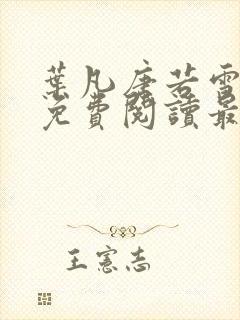 葉凡唐若雪
免費閱讀最
王憲志